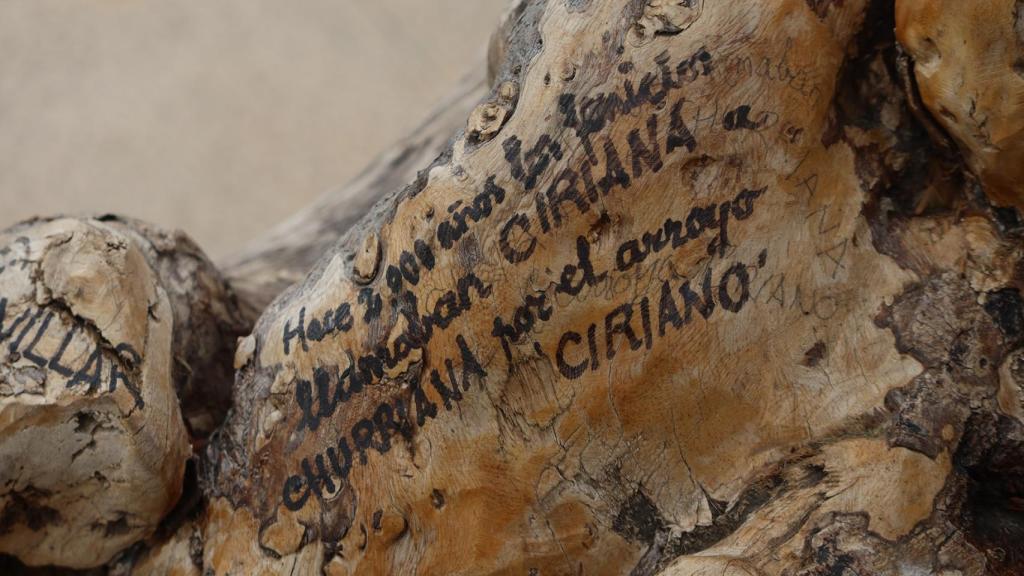 VILLAR
Hace 2.000 años los fenicios
llamaban 'CIRIANA' a
CHURRIANA por el arroyo
'CIRIANO'